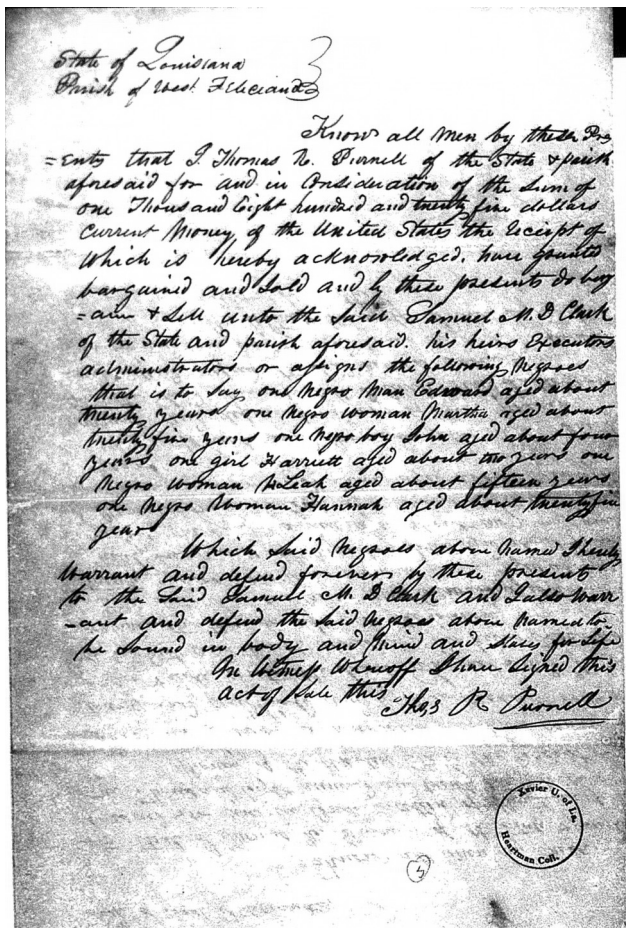 State of Louisiana
Parish of West Feliciana
Know all men by these Pres
=ents that I. Thomas R. Purnell of the State & parish
aforesaid for and in Consideration of the Sum of
one Thousand Eight hundred and twenty five dollars
Current Money of the United States the receipt of
Which is hereby acknowledged. have granted
bargained and Sold and by these presents do barg
=ain & Sell unto the Said Samuel M. D Clark
of the State and parish aforesaid. his heirs Executors
administrators or assigns the following Negroes
that is to Say one Negro Man Edward aged about
twenty years one Negro woman Martha aged about
twenty five years one Negro boy John aged about four
years one girl Harriett aged about two years one
Negro woman Leah aged about fifteen years
one Negro Woman Hannah aged about twenty five
years
Which Said Negroes above Named I hereby
Warrant and defend forever by these presents
to the Said Samuel M. D Clark and I also Warr
-ant and defend the Said Negroes above Named to
be Sound in body and Mind and Slaves for Life
In Witness Whereoff I have Signed this
Act of Sale this
Thos R Purnell
Xavier U. of La.
Heartman Coll.